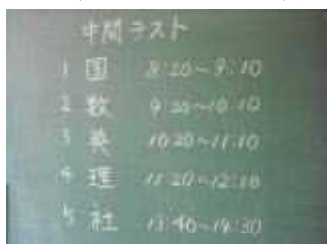 中間テスト
1 国 8:20~9:10
2 数 9:20~10:10
3 英 10:20~11:10
4 理 11:20~12:10
5 社 13:40~14:30